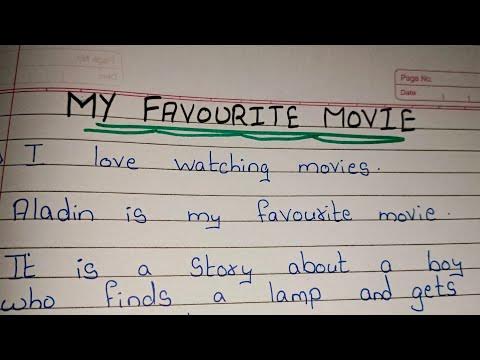 Page No.
Date
MY FAVOURITE MOVIE
I love watching movies.
Aladin is my favourite movie.
It is a story about a boy
who finds a lamp and gets